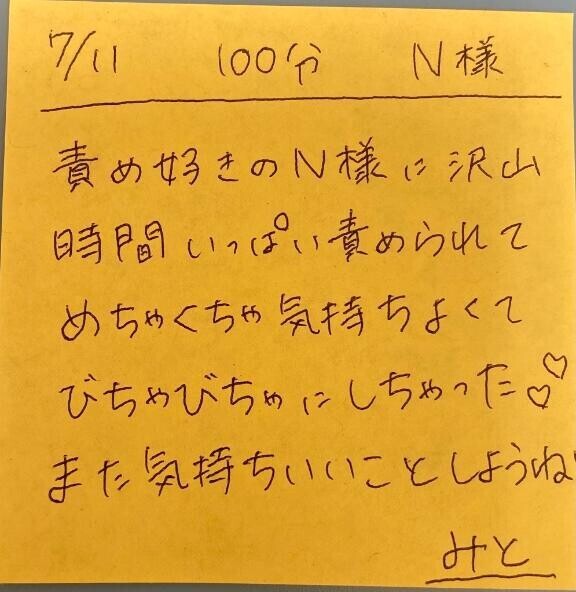 7/11 100分 N様
責め好きのN様に沢山
時間いっぱい責められて
めちゃくちゃ気持ちよくて
びちゃびちゃにしちゃった♡♡
また気持ちいいことしようね
みと